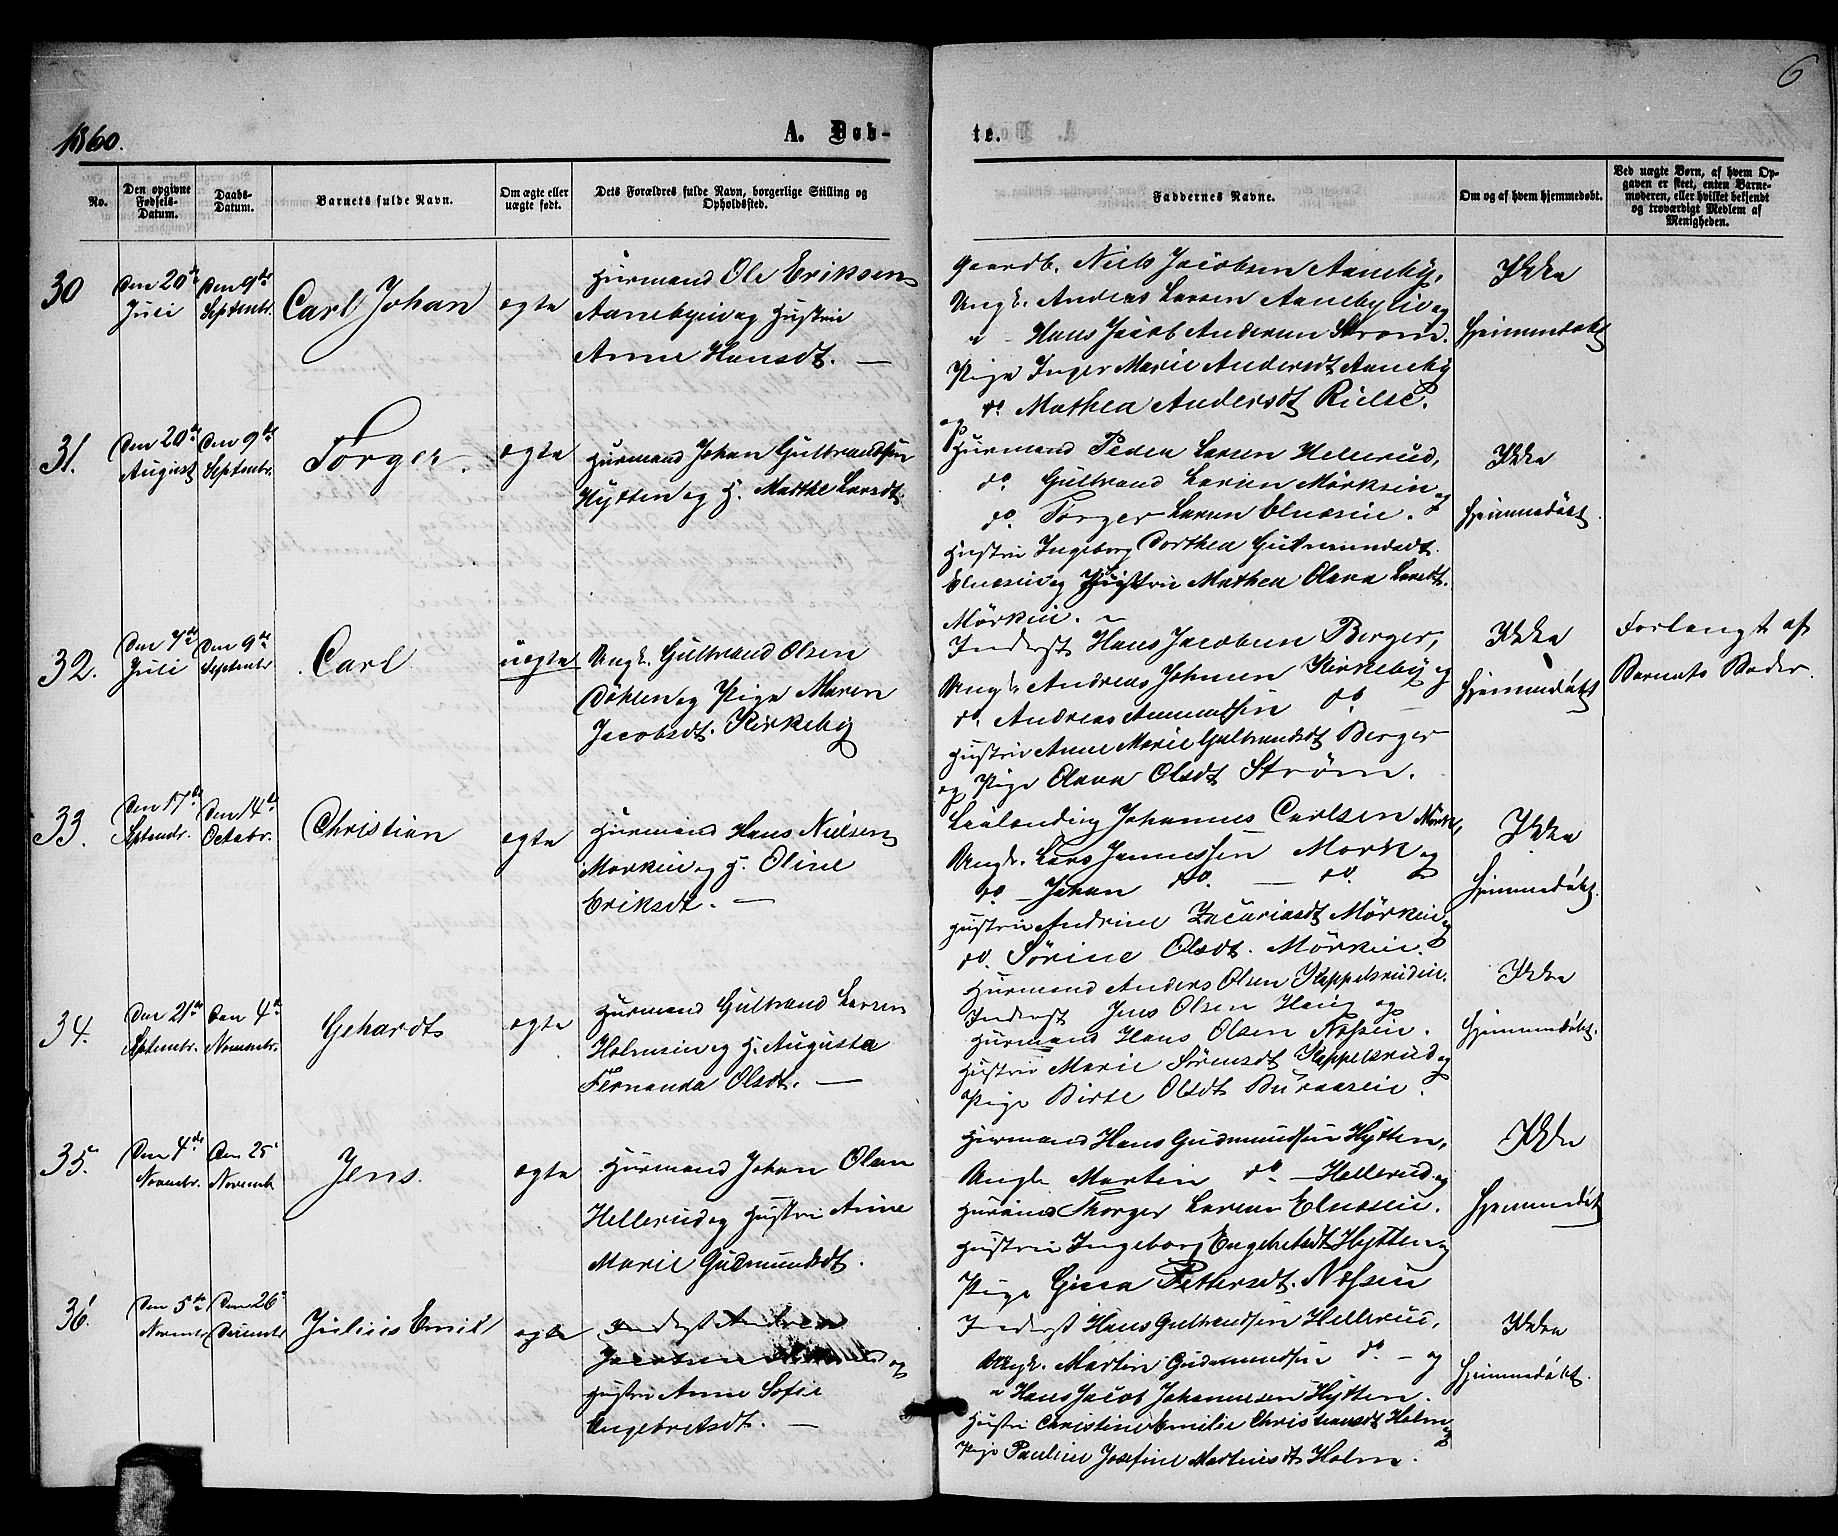 6
1860.
A. Døb-
te.
No.
Den opgivne Fødsels-Datum.
Daabs-Datum.
Barnets fulde Navn.
Om ægte eller uægte født.
Dets Forældres fulde Navn, borgerlige Stilling og Opholdssted.
Faddernes Navne.
Om og af hvem hjemmedøbt.
Ved uægte Børn, af hvem Opgaven er skeet, enten Barnemoderen, eller hvilket bekjendt og troværdigt Medlem af Menigheden.
30
Den 20de Juli
Den 9de Septembr.
Carl Johan
ægte
Huusmand Ole Eriksen
Aanebyeie og Hustrue
Anne Hansdt. —
Gaardb. Niels Jacobsen Aaneby,
Ungk. Anders Larsen Aanebyeie og
" - Hans Jacob Andersen Strøm.
Pige Inger Marie Andersdt Aaneby
og do. Mathea Andersdt
Ikke
hjemmedøbt
31.
Den 20de August
Den 9de Septembr.
Torger.
ægte
Huusmand Johan Gulbrandsen
Hytten og H. Marthe Larsdt.
Huusmand Peder Larsen Hellerud,
do. Gulbrand Larsen Mörkeie
do. Torger Larsen Elneseie. og
Hustrue Ingeborg Dorthea Gudmundsdt.
Elneseie og Hustrue Mathea Olava Larsdt.
Mörkeie. ~
Ikke
hjemmedøbt.
32.
Den 7de Juli
Den 9de Septembr
Carl
uægte
Ungk. Gulbrand Olsen
Döhlen og Pige Maren
Jacobsdt. Kirkeby
Inderst Hans Jacobsen Berger,
Ungk. Andreas Johnsen Kirkeby og
do. Andreas Amundsen do. —
Hustrue Anne Marie Gulbrandsdt Berger
og Pige Olava Olsdt Strøm.
Ikke
hjemmedøbt
Forlangt af
Barnets Moder.
33.
Den 17de Septembr.
Den 14de Octobr.
Christian
ægte
Huusmand Hans Nielsen
Mørkeie og H. Oline
Eriksdt. —
Johannes Carlsen Mörk,
Ungk. Lars Jannessen Mørk og
do. Johan do. — do.
Hustrue Andrine Zacariasdt Mörkeie og
do. Sörine Olsdt. Mörkeie.
Ikke
hjemmedøbt.
34.
Den 21de Septembr.
Den 4de Novembr.
Gehardt
ægte
Huusmand Gulbrand Larsen
Holmseie og H. Augusta
Fernanda Olsdt. —
Huusmand Anders Olsen Keppelsrudeie.
Inderst Jens Olsen Haug og
Huusmand Hans Olsen Næseie.
Hustrue Marie Sørensdt Keppelsrud og
Pige Birte Olsdt Buraaseie.
Ikke
hjemmedøbt.
35.
Den 4de Novembr.
Den 25 Novemb.
Jens.
ægte
Huusmand Johan Olsen
Hellerud og Hustrue Anne
Marie Gudmundsdt.
Huusmand Hans Gudmundsen Hytten,
Ungk. Martin do. — Hellerud og
Huusmd Thorger Larsen Elneseie.
Hustrue Ingeborg Engebretsdt Hytten og
Pige Gina Pettersdt. Næseie
Ikke
hjemmedøbt
36.
Den 5te Novembr
Den 26 Decembr
Julius Emil
ægte
Inderst Andreas
Jacobsen og
Hustrue Anne Sofie
Engebretsdt. —
Inderst Hans Gulbrandsen Hellerud,
Ungk. Martin Gudmundsen do. — og
" Hans Jacob Johannesen Hytten.
Hustru Christine Emilie Christiansdt Holm og
Pige Pauline Josefine Martinsdt Holm.
Ikke
hjemmedøbt.